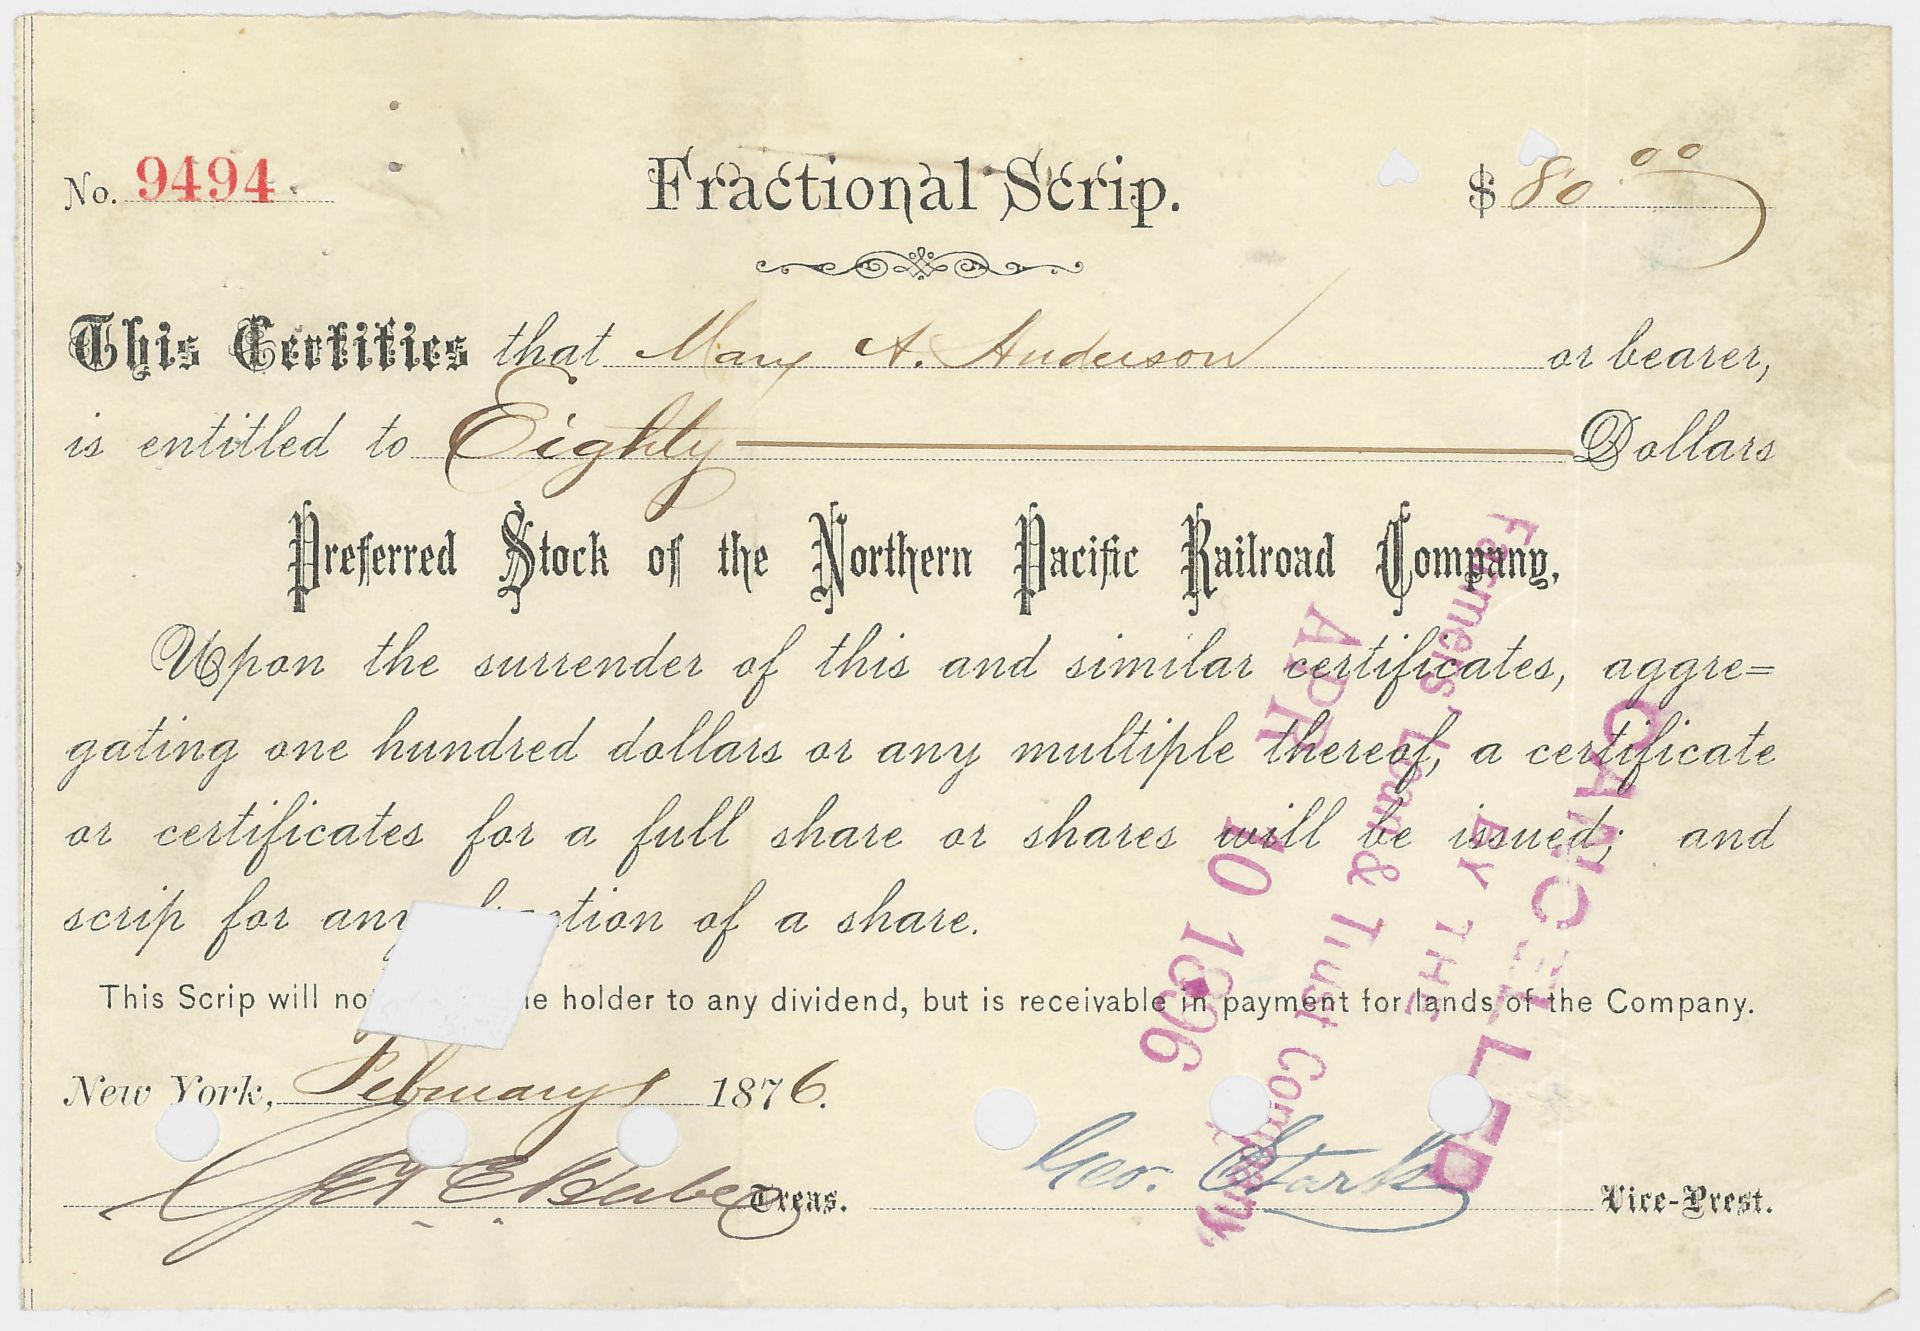 No. 9494
Fractional Scrip.
$ 80.00
This Certifies that Mary A. Anderson or bearer,
is entitled to Eighty Dollars
Preferred Stock of the Northern Pacific Railroad Company,
Upon the surrender of this and similar certificates, aggre=
gating one hundred dollars or any multiple thereof, a certificate
or certificates for a full share or shares will be issued; and
scrip for any of a share.
This Scrip will holder to any dividend, but is receivable in payment for lands of the Company.
New York, February 1 1876.
Treas. Geo. Stark Vice-Prest.
CANCELLED
BY THE
Farmers' Loan & Trust Company.
APR 10 1896